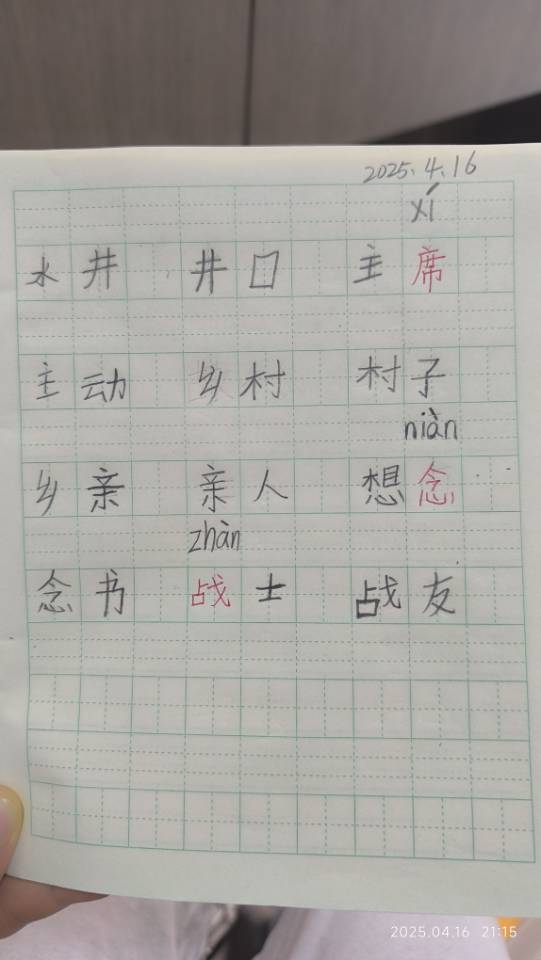 2025.4.16
xí
水井 井口 主席
主动 乡村 村子
niàn
乡亲 亲人 想念
zhàn
念书 战士 战友
2025.04.16 21:15